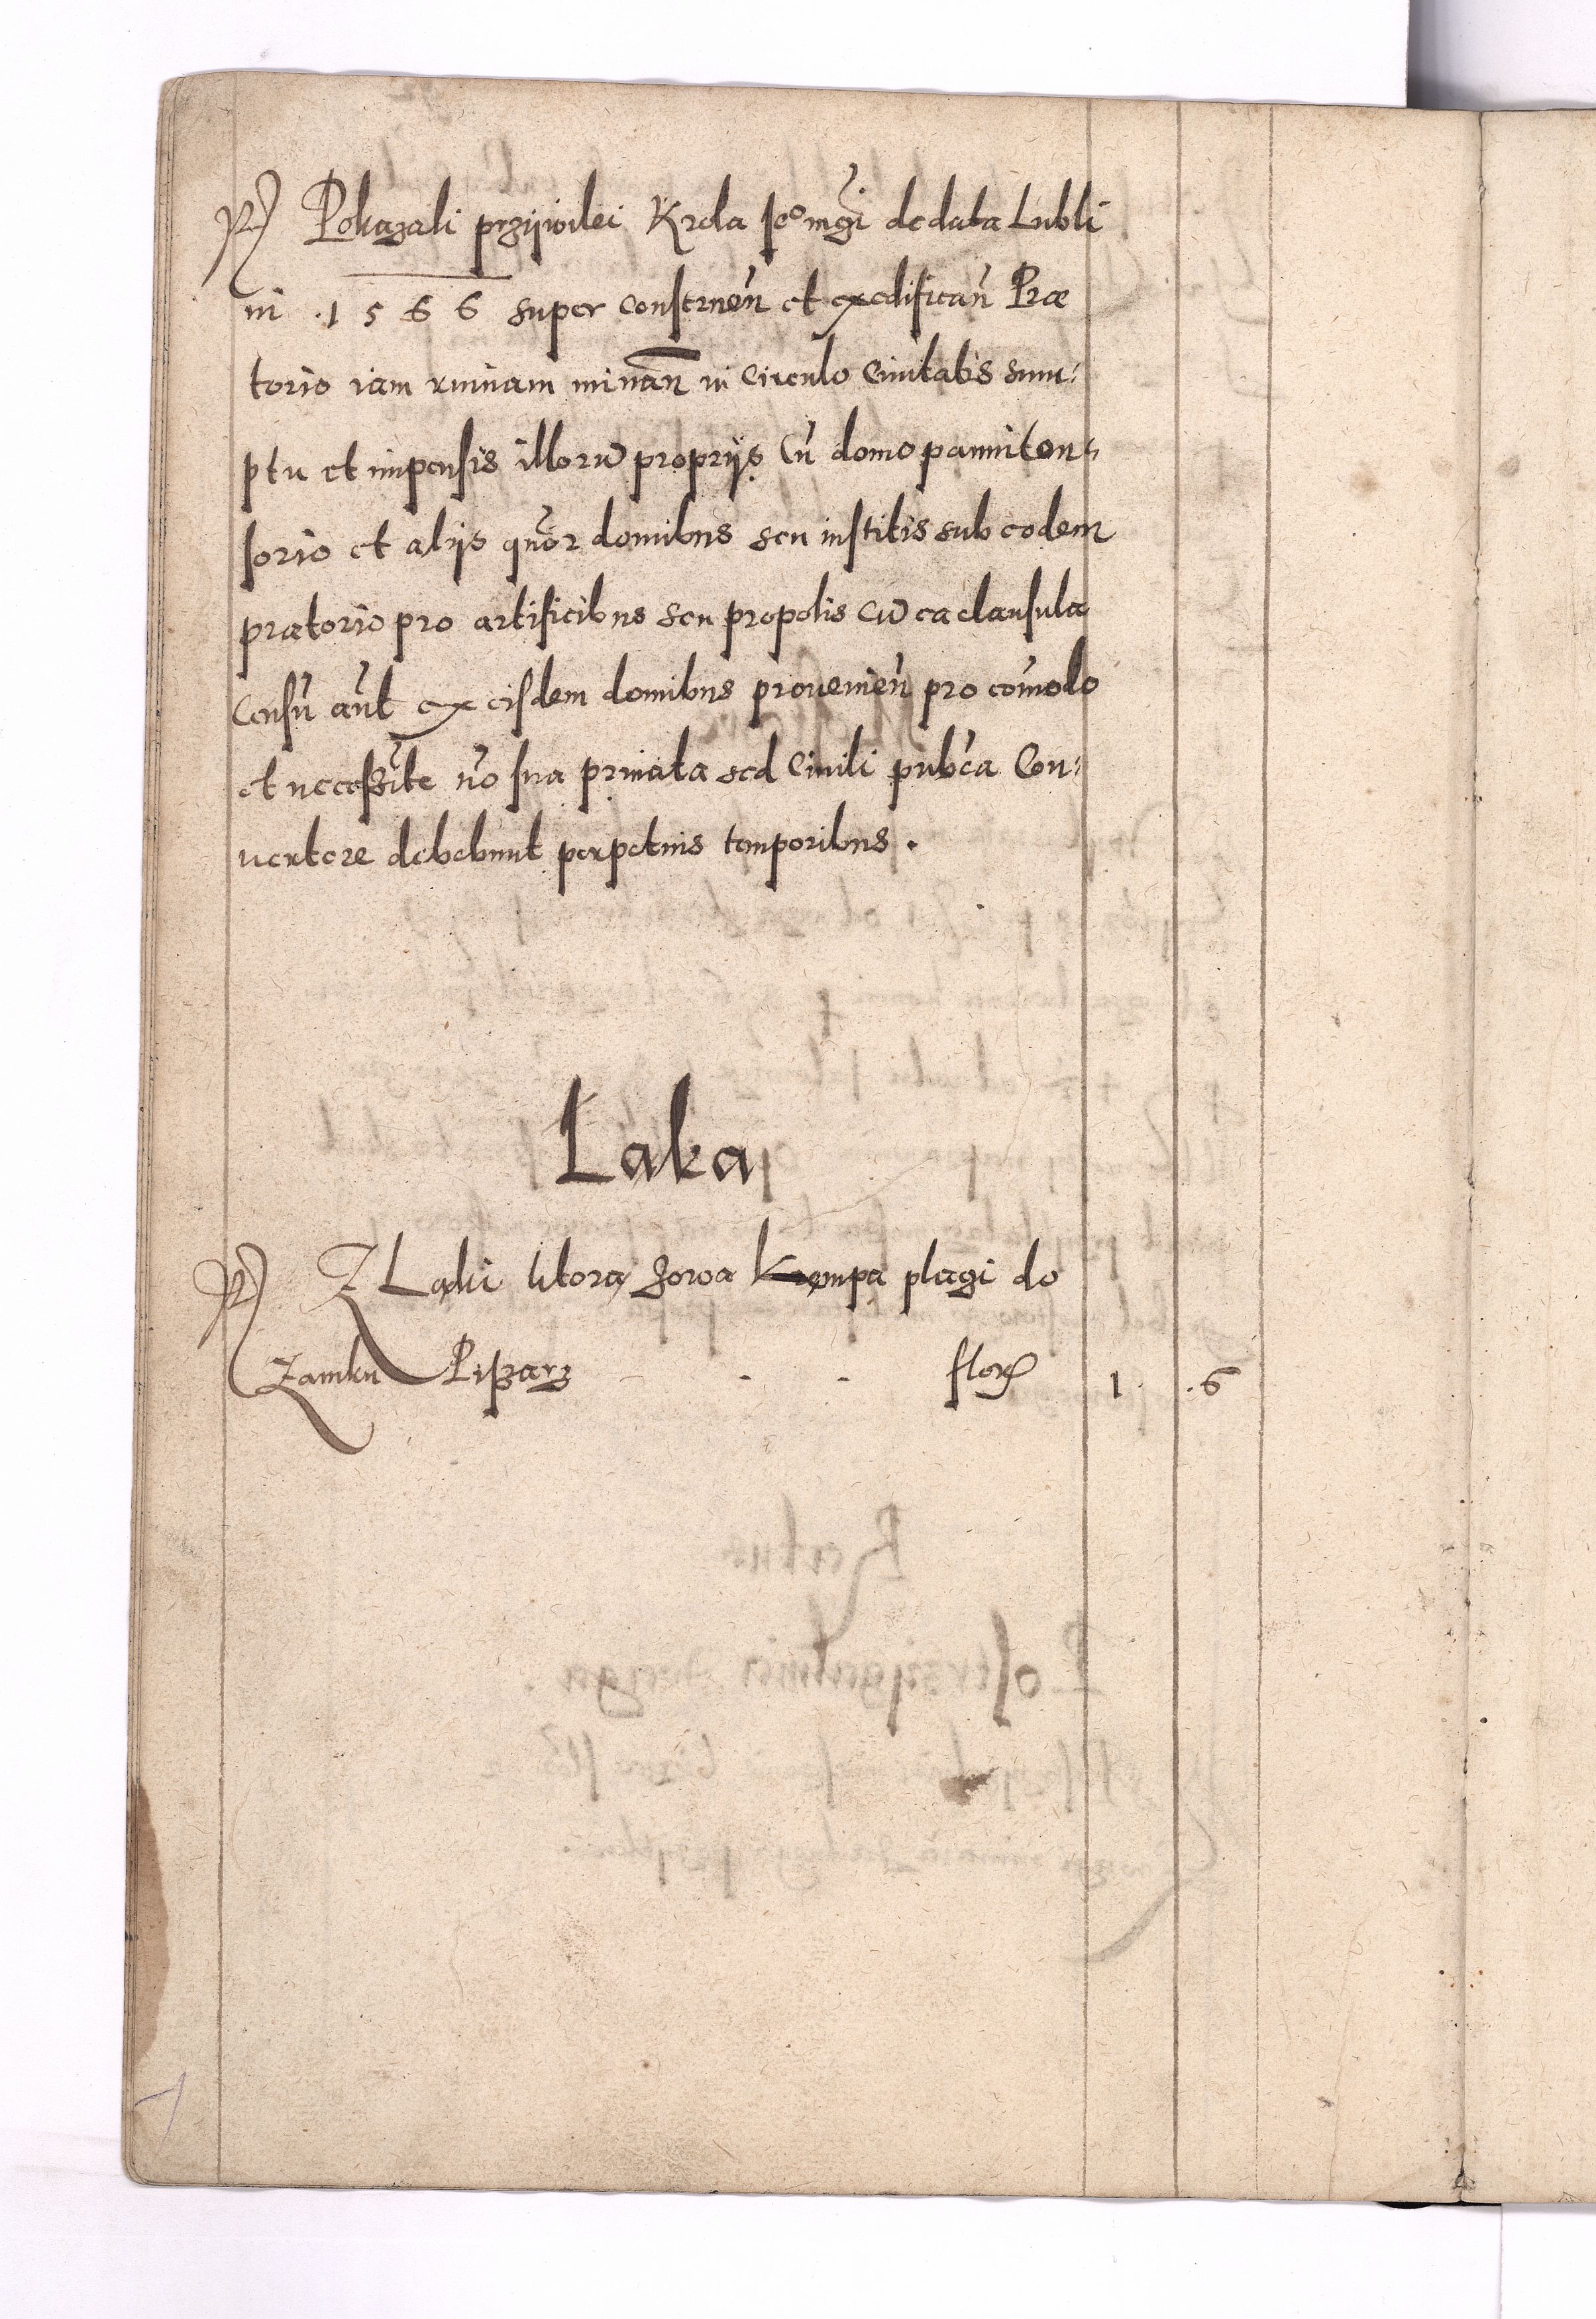 Pokazali przÿwilei Krola Jeº mgi de data Lubli
ni .1566 super construen̄ et exedifican̄ Præ
torio iam ruinam minan̄ in Circulo Ciuitatis sum⸗
ptu et impensis illorū proprijs Cū domo panniton⸗
sorio et alijs quor domibus seu institis sub eodem
prætorio pro artificibus seu propolis Cū ea clausula
Censū aūt ex eisdem domibus prouenien̄ pro com̄odo
et necessīte nō sua priuata sed Ciuili pub̄ca Con⸗
uertere debebunt perpetuis temporibus.
Laka
Z Ląki ktorą zowa Krempa plaçi do
Zamku Piszarz . . flor 1. .6